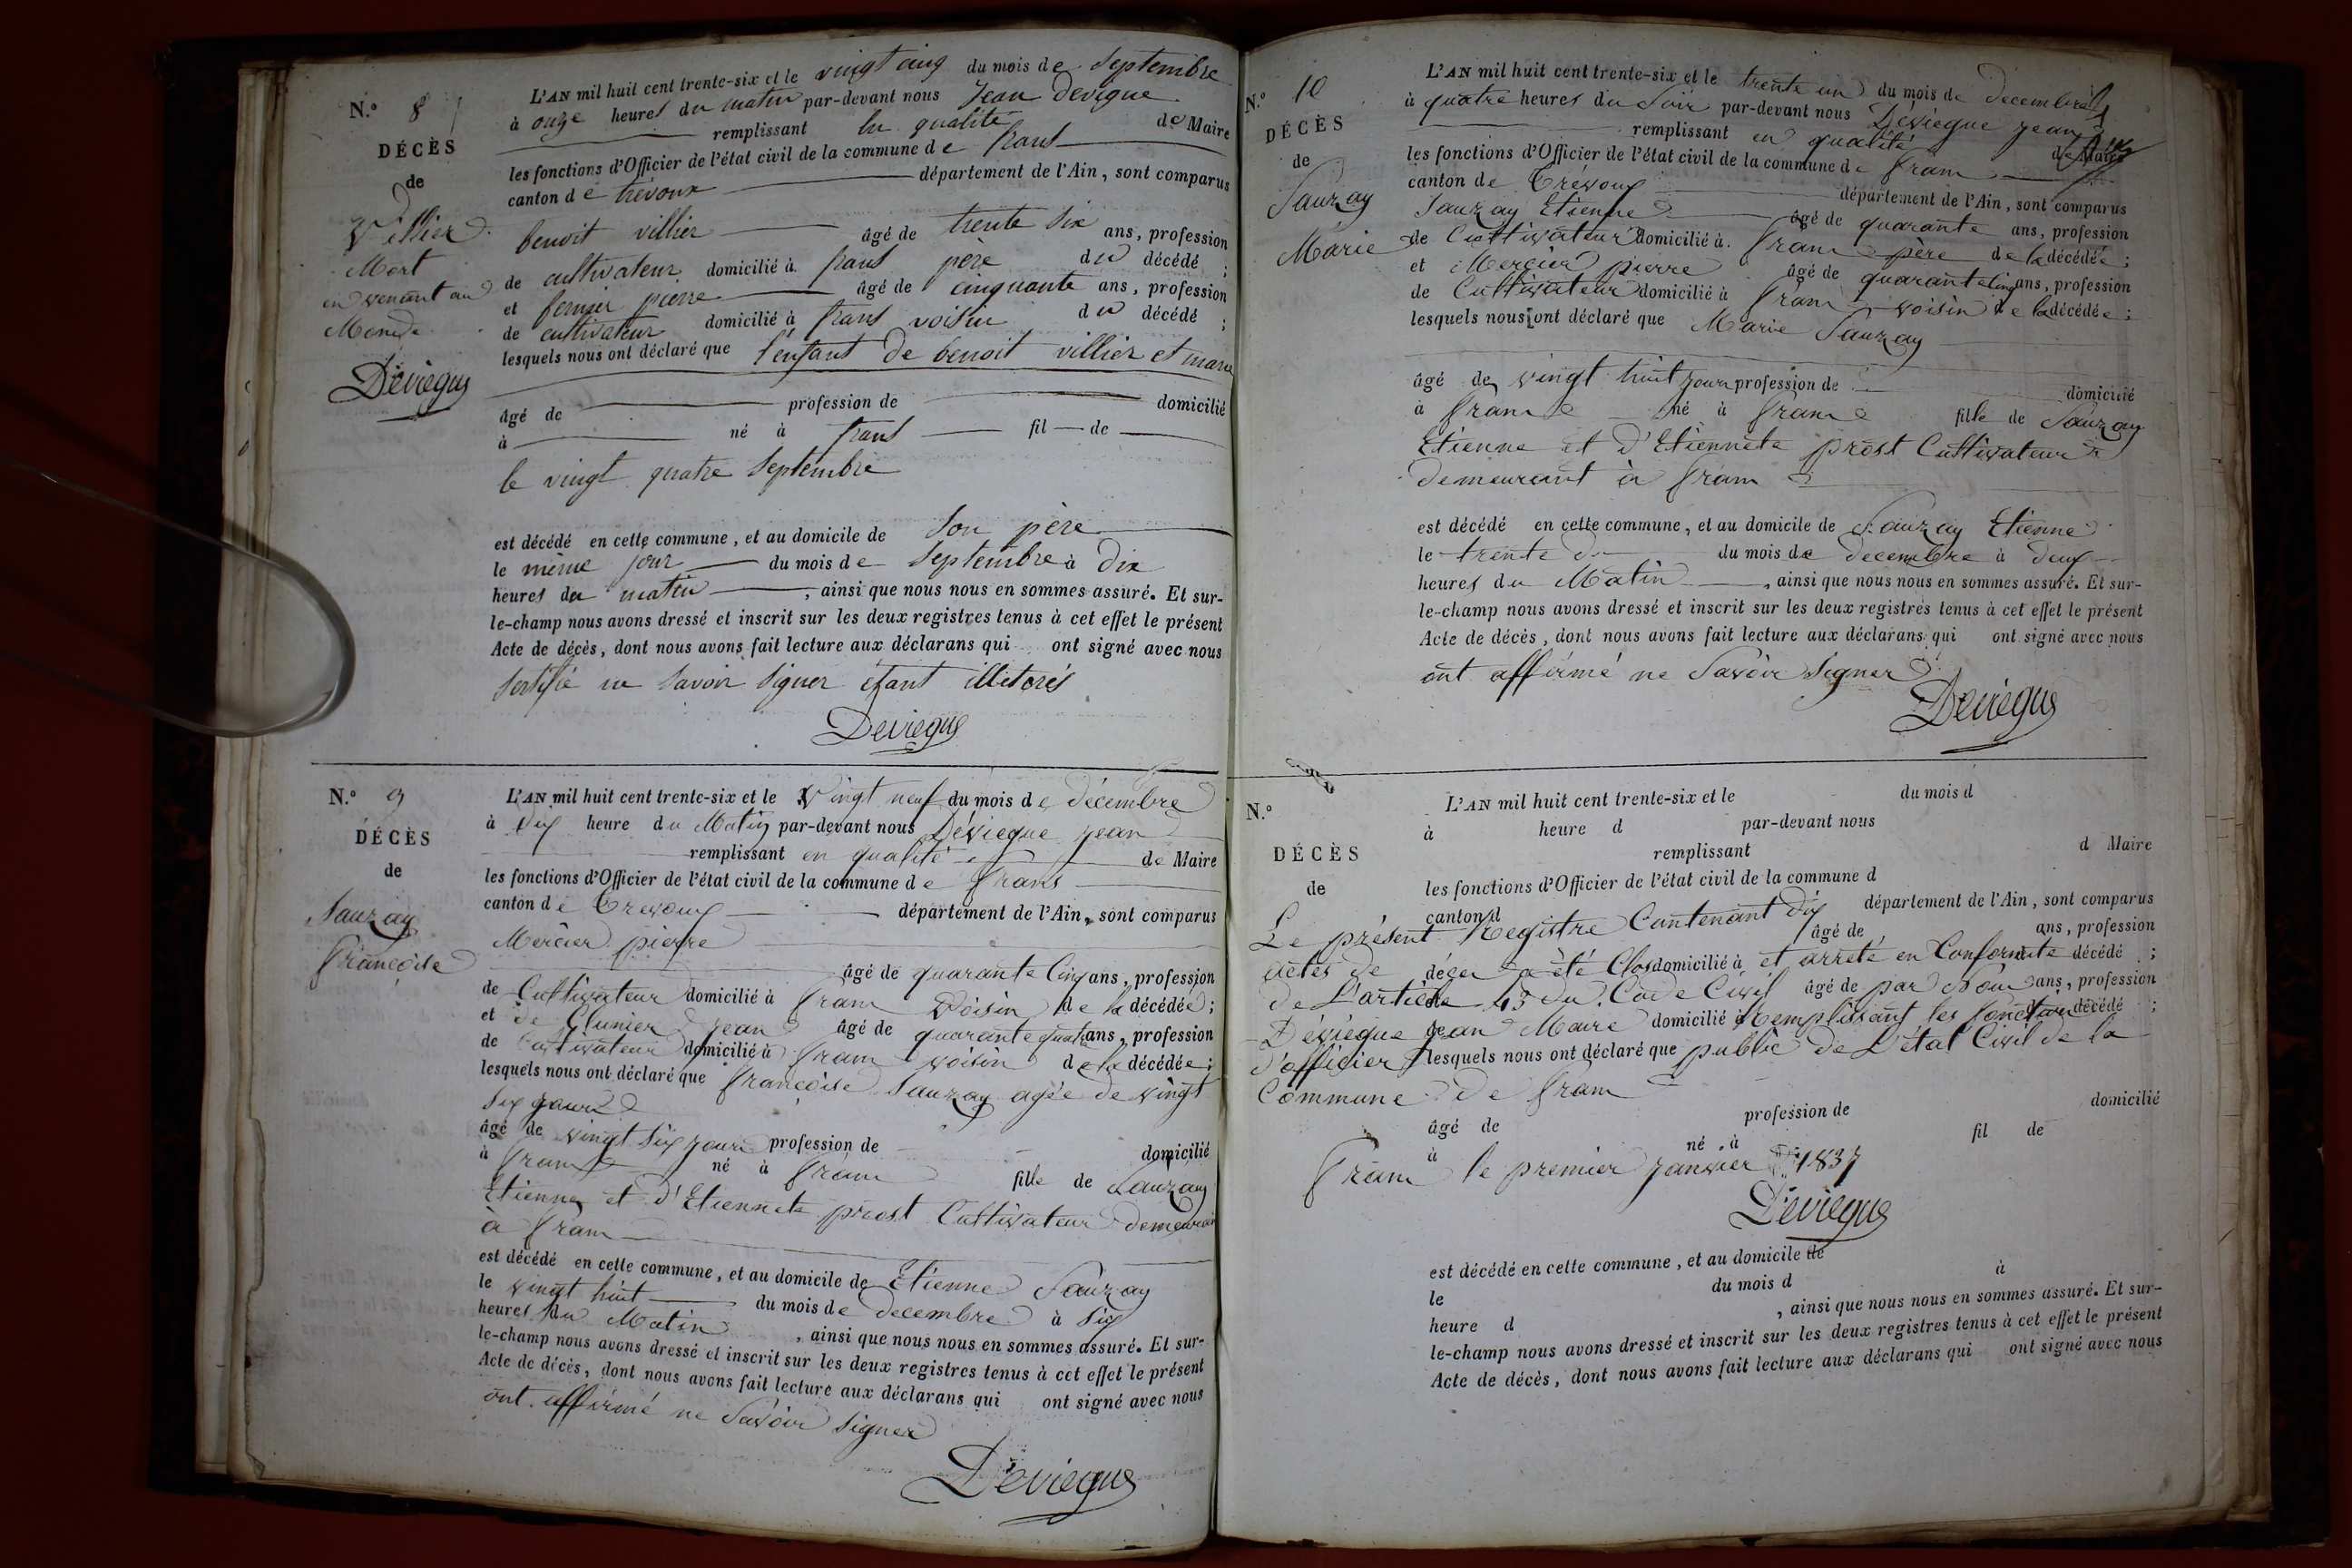 N.° 8
DÉCÈS
de
Villier
Mort
en venant au
Monde
Deviegue
L'AN mil huit cent trente-six et le vingt cinq du mois de Septembre
à onze heures du matin par-devant nous Jean devigue
remplissant en qualité de Maire
les fonctions d'Officier de l'état civil de la commune de frans
canton de trévoux département de l'Ain, sont comparus
benoit villier âgé de trente six ans, profession
de cultivateur domicilié à frans père du décédé ;
et fernier pierre âgé de cinquante ans, profession
de cultivateur domicilié à frans voisin du décédé ;
lesquels nous ont déclaré que l'enfant de benoit villier et marie
âgé de profession de domicilié
à né à frans fil de
le vingt quatre Septembre
est décédé en cette commune, et au domicile de son père
le même jour du mois de Septembre à Dix
heures du matin , ainsi que nous nous en sommes assuré. Et sur-
le-champ nous avons dressé et inscrit sur les deux registres tenus à cet effet le présent
Acte de décès, dont nous avons fait lecture aux déclarans qui ont signé avec nous
ne savoir signer étant illetorés
Deviegue
N.° 9
DÉCÈS
de
Sauzay
françoise
L'AN mil huit cent trente-six et le Vingt neuf du mois de décembre
à dix heure du Matin par-devant nous Déviegue jean
remplissant en qualité de Maire
les fonctions d'Officier de l'état civil de la commune de frans
canton de Trevoux département de l'Ain, sont comparus
Mercier pierre
âgé de quarante Cinq ans, profession
de Cultivateur domicilié à fram Voisin de la décédée ;
et de Clunier jean âgé de quarante quatre ans, profession
de Cultivateur domicilié à fram voisin de la décédée ;
lesquels nous ont déclaré que françoise Sauzay agée de vingt
six jours
âgé de vingt six jours profession de domicilié
à fram né à fram fille de Sauzay
Etienne et d'Etiennete prost Cultivateur demeurant
à fram
est décédé en cette commune, et au domicile de Etienne Sauzay
le vingt huit du mois de decembre à six
heures du Matin , ainsi que nous nous en sommes assuré. Et sur-
le-champ nous avons dressé et inscrit sur les deux registres tenus à cet effet le présent
Acte de décès, dont nous avons fait lecture aux déclarans qui ont signé avec nous
ont affirmé ne Savoir signer
Deviegue
N.° 10
DÉCÈS
de
Sauzay
Marie
L'AN mil huit cent trente-six et le trente un du mois de decembre
à quatre heures du Soir par-devant nous Déviegue jean
remplissant en qualité de Maire
les fonctions d'Officier de l'état civil de la commune de fram
canton de Trévoux département de l'Ain, sont comparus
Sauzay Etienne âgé de quarante ans, profession
de Cultivateur domicilié à fram père de la décédée ;
et Mercier pierre âgé de quarante Cinq ans, profession
de Cultivateur domicilié à fram voisin de la décédée ;
lesquels nous ont déclaré que Marie Sauzay
âgé de vingt huit jours profession de domicilié
à fram né à fram fille de Sauzay
Etienne et d'Etiennete prost Cultivateur
demeurant à fram
est décédé en cette commune, et au domicile de Sauzay Etienne
le trente du du mois de decembre à deux
heures du Matin , ainsi que nous nous en sommes assuré. Et sur-
le-champ nous avons dressé et inscrit sur les deux registres tenus à cet effet le présent
Acte de décès, dont nous avons fait lecture aux déclarans qui ont signé avec nous
ont affirmé ne Savoir Signer
Deviegue
N.°
DÉCÈS
de
L'AN mil huit cent trente-six et le du mois d
à heure d par-devant nous
remplissant d Maire
les fonctions d'Officier de l'état civil de la commune d
canton d département de l'Ain, sont comparus
Le présent Registre Contenant dix
âgé de ans, profession
actes de décer a été Clos domicilié à et arreté en Conformité décédé ;
de L'article 43 du Code Civil âgé de par Nous ans, profession
Déviegue jean Maire domicilié à Remplissant les fonction décédé ;
d'officier lesquels nous ont déclaré que public de L'état Civil de la
Commune de fram
âgé de profession de domicilié
à né à fil de
fram le premier janvier 1837
Deviegue
est décédé en cette commune, et au domicile de
le du mois d à
heure d , ainsi que nous nous en sommes assuré. Et sur-
le-champ nous avons dressé et inscrit sur les deux registres tenus à cet effet le présent
Acte de décès, dont nous avons fait lecture aux déclarans qui ont signé avec nous